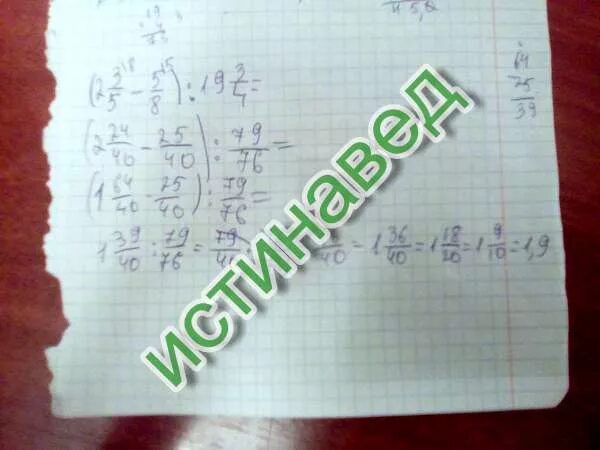 (2 3/5 - 5/8) : 19 3/4 =
(2 24/40 - 25/40) : 79/76 =
(1 64/40 - 25/40) : 79/76 =
1 39/40 : 79/76 = 79/40 /40 = 1 36/40 = 1 18/20 = 1 9/10 = 1,9
64
25
39
истинавед